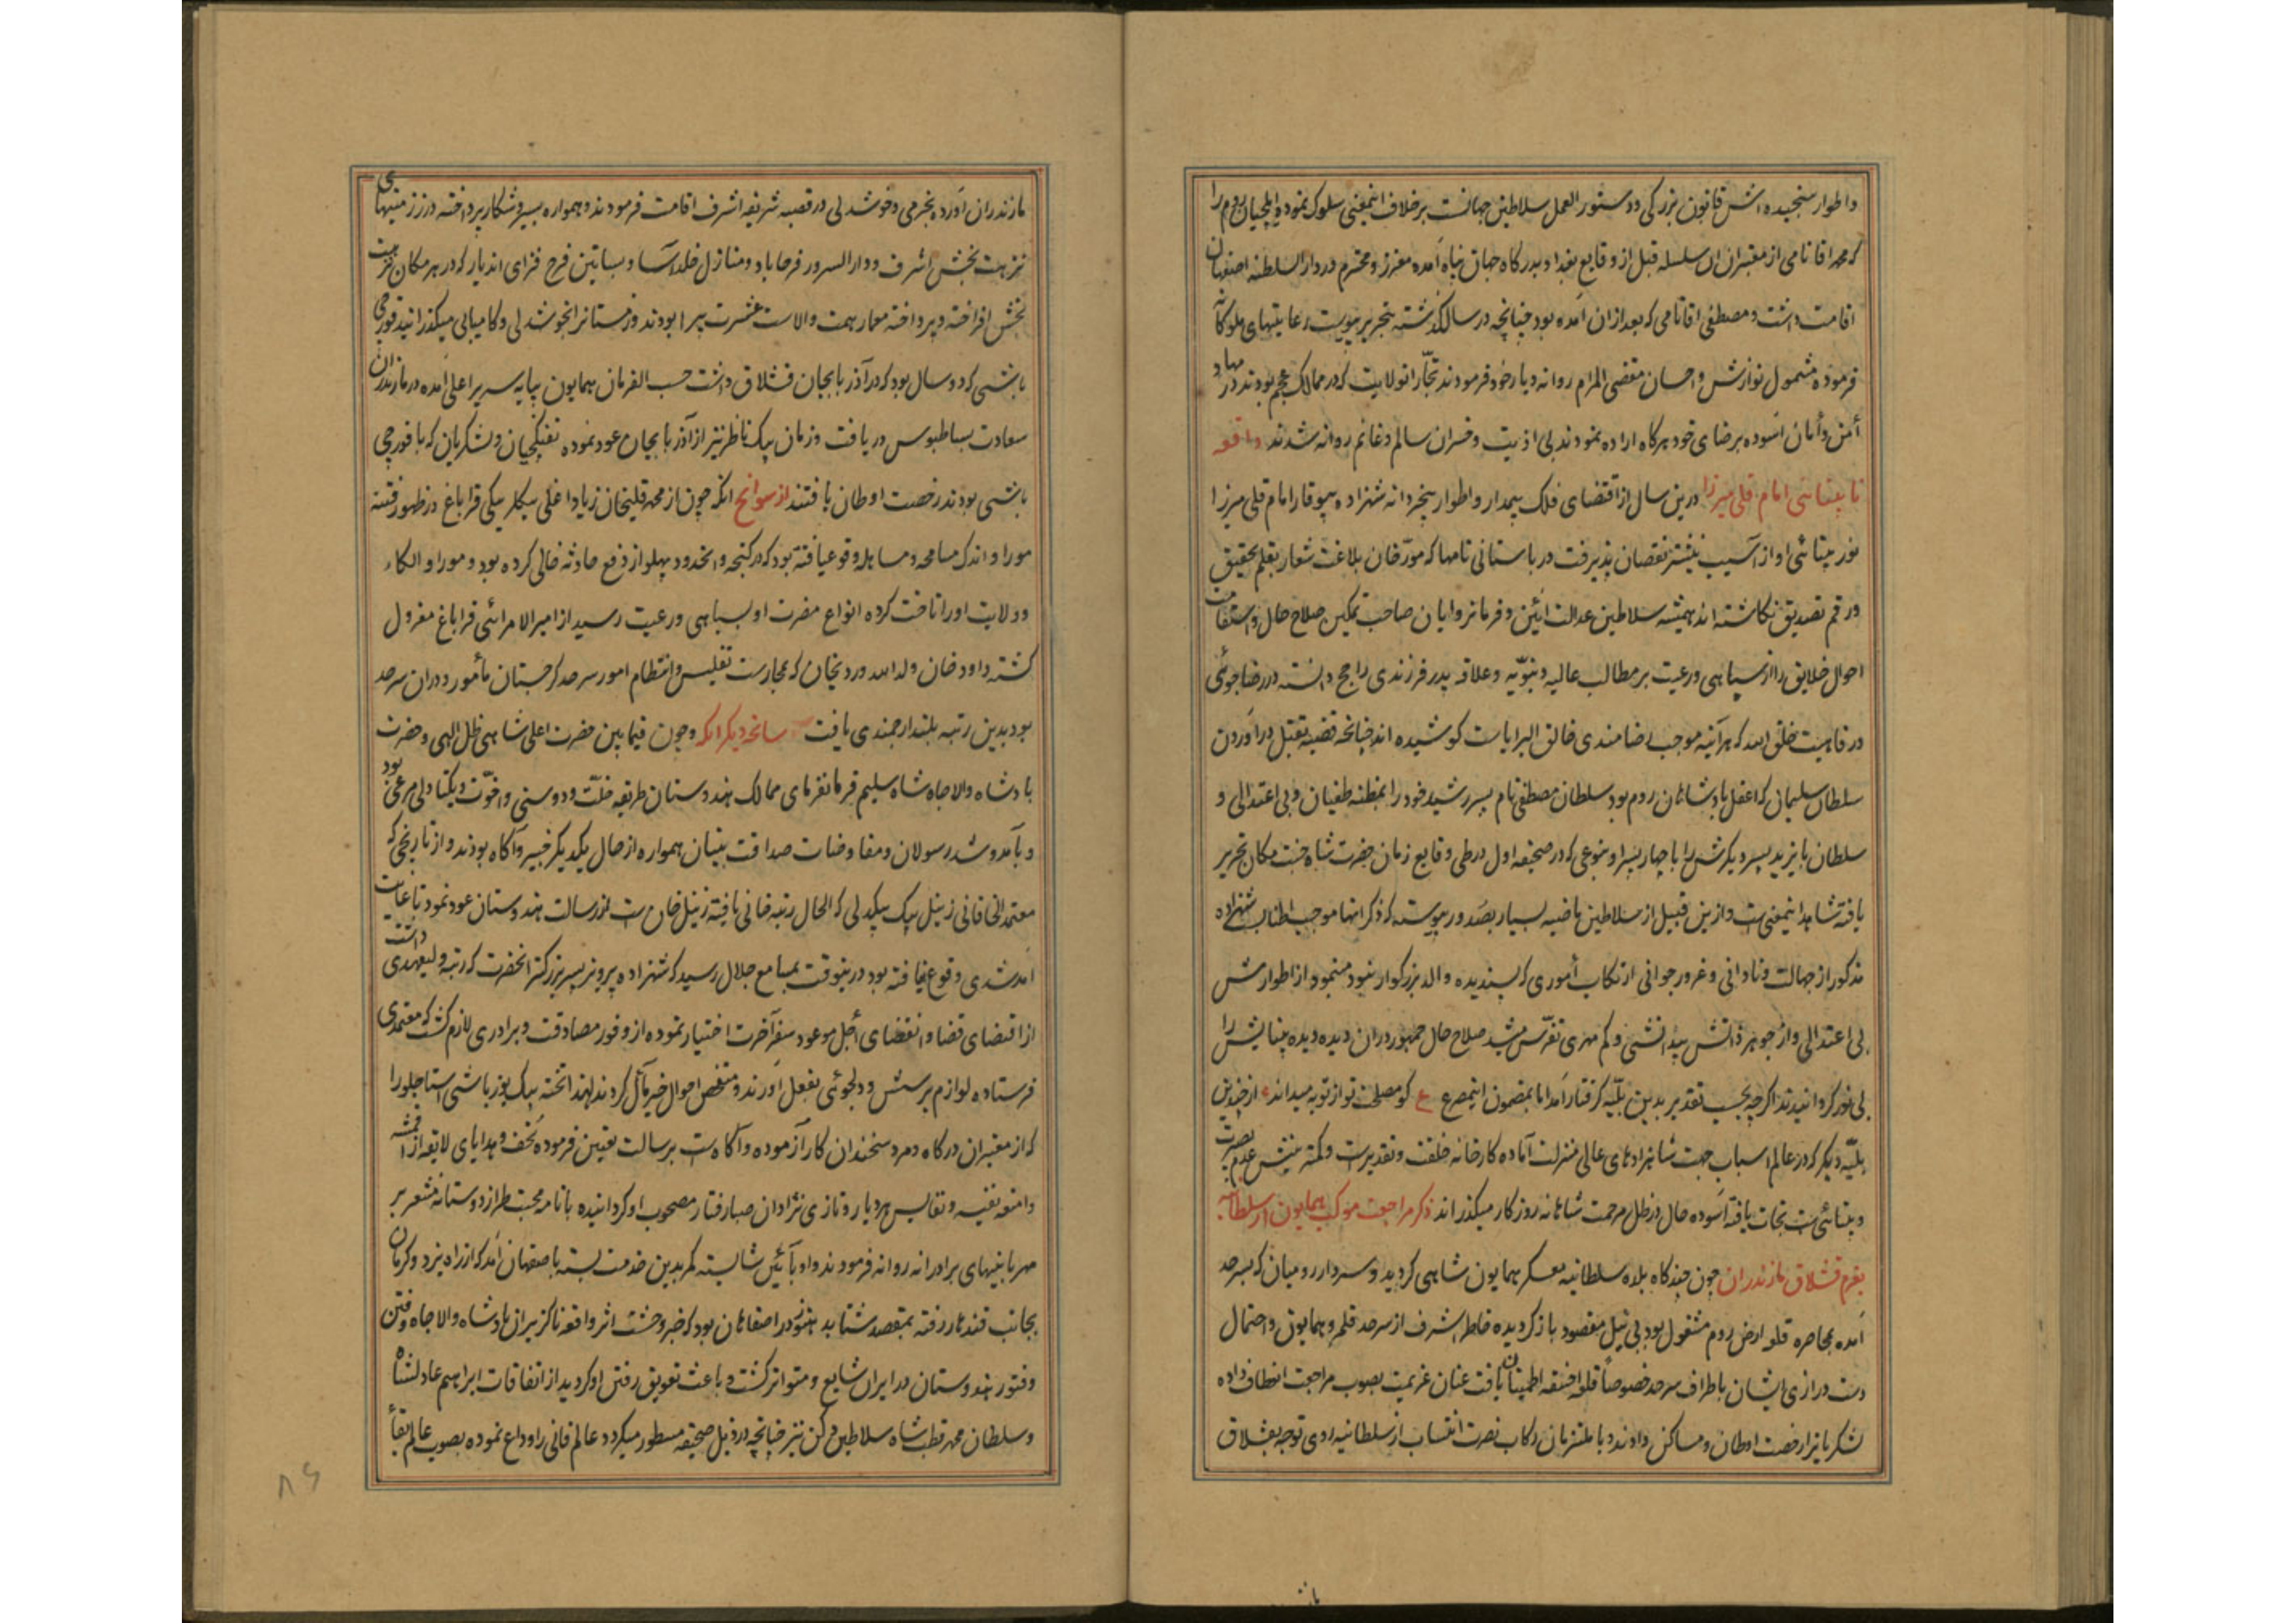 واطوار سنجیده اش قانون بزرکی و دستور العمل سلاطین جهانست برخلاف اینمعنی سلوک نموده ایلچیان روم را
که محمد اقا نامی از معتبران ان سلسله قبل از وقایع بغداد بدرکاه جهان پناه آمده معزز و محترم در دار السلطنه اصفهان
اقامت داشت و مصطفی اقا نامی که بعد ازان آمده بود چنانچه در سال گذشته بتحریر پیوست رعایتهای ملوکانه
فرموده مشمول نوازش و احسان مقضی المرام روانه دیار خود فرمودند و تجار انولایت که در ممالک عجم بودند در مهاد
أمن و أمان آسوده برضای خود هرکاه اراده نمودند بی اذیت و خسران سالم و غانم روانه شدند واقعه
نابینائی امام قلی میرزا درین سال از اقتضای فلک بیمدار و اطوار بیخردانه شهزاده بیوقار امام قلی میرزا
نور بینائی او از آسیب نیشتر نقصان پذیرفت در باستانی نامها که مورخان بلاغت شعار بقلم تحقیق
و رقم تصدیق نکاشته اند همیشه سلاطین عدالت ائین و فرمانروایان صاحب تمکین صلاح حال و استقامت
احوال خلایق را از سپاهی و رعیت بر مطالب عالیه دنیویه و علاقه پدر فرزندی راجح دانسته در رضاجوئی
و رفاهیت خلق الله که هرآینه موجب رضامندی خالق البرایاست کوشیده اند چنانچه قضیه بقتل در آوردن
سلطان سلیمانی که اعقل پادشاهان روم بود سلطان مصطفی نام پسر رشید خود را بمظنه طغیان و بی اعتدالی و
سلطان بایزید پسر دیکرش را با چهار پسر او بنوعی که در صحیفه اول در طی وقایع زمان حضرت شاه جنت مکان تحریر
یافته شاهد اینمعنی است و ازین قبیل از سلاطین ماضیه بسیار بصدور پیوسته که ذکر انها موجب اطناب است شهزاده
مذکور از جهالت و نادانی و غرور جوانی ارتکاب أموری که پسندیده والد بزرکوار نبود مینمود و از اطوارش
بی اعتدالی و از جوهر ذاتش بیدانشی و کم مهری تفرس میشد صلاح حال جمهور دران دیده دیده بینایش را
بی نور کردانیدند اکرچه بحسب تقدیر بدین بلیه کرفتار آمد اما بمضمون اینمصرع ع کو مصلحت تو از تو به میداند از چندین
بلیه دیکر که در عالم اسباب جهت شاهزادهای عالی منزلت آماده کارخانه خلقت و تقدیرست و کمترینش عدم بصیرت
و بینائی است نجات یافته آسوده حال در ظل مرحمت شاهانه روزکار میکذراند ذکر مراجعت موکب همایون از سلطانیه
بعزم قشلاق مازندران چون چندکاه بلده سلطانیه معسکر همایون شاهی کردید و سردار رومیان که بسرحد
آمده بمحاصره قلعه ارض روم مشغول بود بی نیل مقصود باز کردیده خاطر اشرف از سرحد قلمرو همایون و احتمال
دست درازی ایشان باطراف سرحد خصوصاً قلعه اخسقه اطمینان یافت عنان عزیمت بصوب مراجعت انعطاف داده
لشکریانرا رخصت اوطان و مساکن دادند و با ملتزمان رکاب نصرت انتساب از سلطانیه روی توجه بقشلاق
مازندران آورده بخرمی و خوشدلی در قصبه شریفه اشرف اقامت فرمودند و همواره بسیر و شکار پرداخته در زمینهای
نزهت بخش اشرف و دار السرور فرحاباد و منازل خلد آسا و بساتین فرح فزای اندیار که در هر مکان نزهت
بخش افراخته و پرداخته معمار همت والاست عشرت پیرا بودند و زمستانرا بخوشدلی و کامیابی میکذرانیدند قورچی
باشی که دو سال بود که در آذربایجان قشلاق داشت حسب الفرمان همایون بپایه سریر اعلی آمده در مازندران
سعادت بساطبوس دریافت و زمان بیک ناظر نیز از آذربایجان عود نموده تفنکچیان و لشکریان که با قورچی
باشی بودند رخصت اوطان یافتند از سوانح انکه چون از محمد قلیخان زیاد اغلی بیکلر بیکی قراباغ در ظهور فتنه
موراو اندک مسامحه و مساهله وقوع یافته بود که در کنجه و انحدود پهلو از دفع حادثه خالی کرده بود و موراو الکاء
و ولایت او را تاخت کرده انواع مضرت او بسپاهی و رعیت رسید از امیر الامرائی قراباغ معزول
کشته داود خان ولد الله وردیخان که بحارست تفلیس و انتظام امور سرحد کرجستان مأمور و دران سرحد
بود بدین رتبه بلند ارجمندی یافت سانحه دیکر انکه چون فیمابین حضرت اعلی شاهی ظل الهی و حضرت
پادشاه والاجاه شاه سلیم فرمانفرمای ممالک هندوستان طریقه خلت و دوستی و اخوت و یکتادلی مرعی بود
و بآمد و شد رسولان و مفاوضات صداقت بنیان همواره از حال یکدیکر خبیر و آکاه بودند و از تاریخی که
معتمد الخاقانی زینل بیک بیکدلی که الحال رتبه خانی یافته زینل خان است از رسالت هندوستان عود نمود تا غایت
آمد شدی وقوع نیافته بود درینوقت بمسامع جلال رسید که شهزاده پرویز پسر بزرکتر انحضرت که رتبه ولیعهدی داشت
از اقتضای قضا و انقضای أجل موعود سفر آخرت اختیار نموده از وفور مصادقت و برادری لازم کشت که معتمدی
فرستاده لوازم پرسش و دلجوئی بفعل آورند و متفحص احوال خیر مآل کردند لهذا تخته بیک یوزباشی استاجلو را
که از معتبران درکاه و مرد سخندان کار آزموده و آکاه است برسالت تعیین فرموده تحف و هدایای لایقه از اقمشه
و امتعه نفیسه و نفایس هر دیار و تازی نژادان صبا رفتار مصحوب او کردانیده با نامه محبت طراز دوستانه مشعر بر
مهربانیهای برادرانه روانه فرمودند و او بآئین شایسته کمر بدین خدمت بسته باصفهان آمد که از راه یزد و کرمان
بجانب قندهار رفته بمقصد شتابد هنوز در اصفاهان بود که خبر وحشت اثر واقعه ناکزیران پادشاه والاجاه و فتن
و فتور هندوستان در ایران شایع و متواتر کشت و باعث تعویق رفتن او کردید از اتفاقات ابراهیم عادلشاه
و سلطان محمد قطبشاه سلاطین دکن نیز چنانچه در ذیل صحیفه مسطور میکردد عالم فانی را وداع نموده بصوب عالم بقا